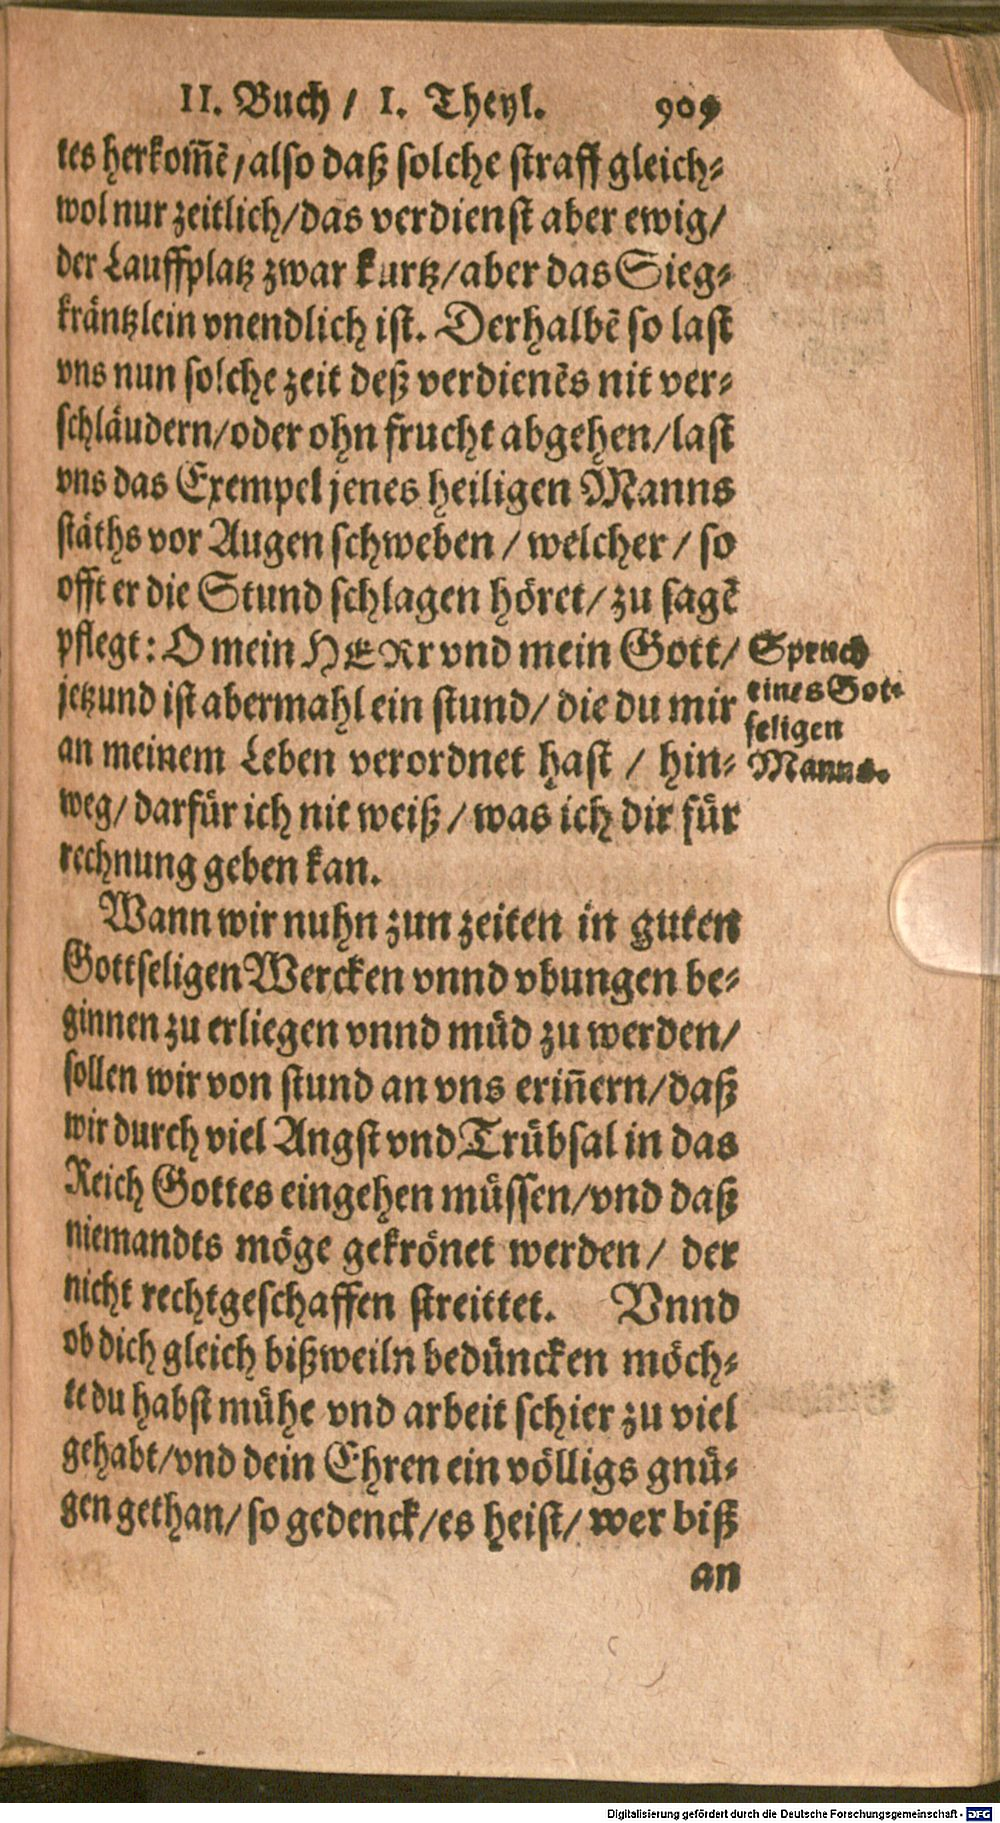 II. Buch / I. Theyl. 909
tes herkom̃ẽ / also daß solche straff gleich⸗
wol nur zeitlich / das verdienst aber ewig /
der Lauffplatz zwar kurtz / aber das Sieg⸗
kräntzlein vnendlich ist. Derhalbẽ so last
vns nun solche zeit deß verdienẽs nit ver⸗
schläudern / oder ohn frucht abgehen / last
vns das Exempel jenes heiligen Manns
stäths vor Augen schweben / welcher / so
offt er die Stund schlagen höret / zu sagẽ
pflegt: O mein HERr vnd mein Gott /
jetzund ist abermahl ein stund / die du mir
an meinem Leben verordnet hast / hin⸗
weg / darfür ich nit weiß / was ich dir für
rechnung geben kan.
Spruch
eines Got⸗
seligen
Manns.
Wann wir nuhn zun zeiten in guten
Gottseligen Wercken vnnd vbungen be⸗
ginnen zu erliegen vnnd müd zu werden /
sollen wir von stund an vns eriñern / daß
wir durch viel Angst vnd Trübsal in das
Reich Gottes eingehen müssen / vnd daß
niemandts möge gekrönet werden / der
nicht rechtgeschaffen streittet. Vnnd
ob dich gleich bißweiln bedüncken möch⸗
te du habst mühe vnd arbeit schier zu viel
gehabt / vnd dein Ehren ein völligs gnü⸗
gen gethan / so gedenck / es heist / wer biß
an
Digitalisierung gefördert durch die Deutsche Forschungsgemeinschaft - DFG